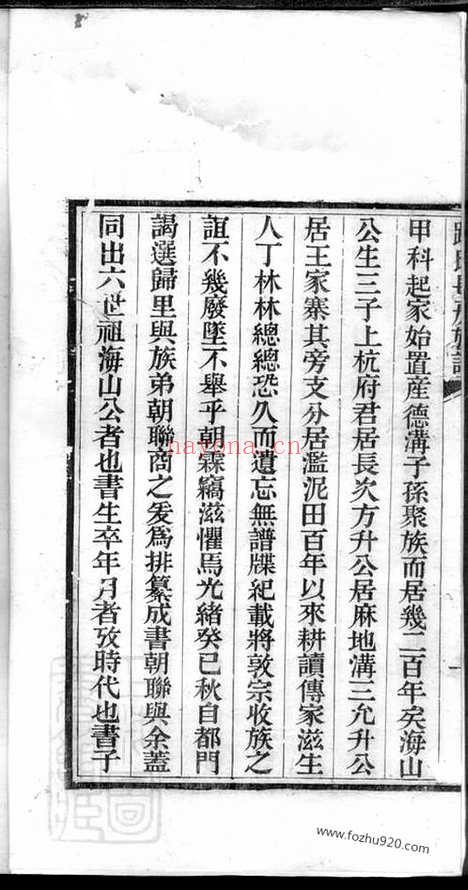 甲科起家始置産德溝子孫聚族而居幾二百年矣海山
公生三子上杭府君居長次方升公居麻地溝三允升公
居王家寨其旁支分居濫泥田百年以來耕讀傳家滋生
人丁林林總總恐久而遺忘無譜牒紀載將敦宗收族之
誼不幾廢墜不舉乎朝霖竊滋懼焉光緒癸巳秋自都門
謁選歸里與族弟朝聯商之爰爲排纂成書朝聯與余蓋
同出六世祖海山公者也書生卒年月者攷時代也書子
nayona.cn
www.fozhu920.com